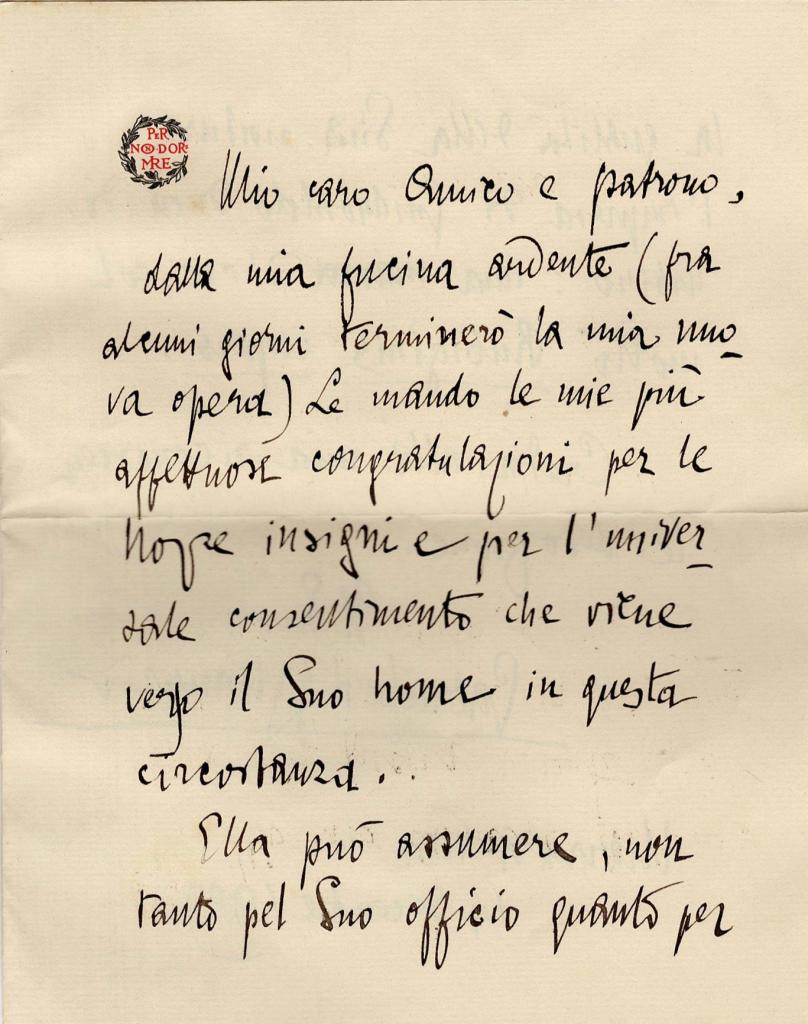 PER
NON DOR
MIRE
Mio caro Amico e patrono,
dalla mia fucina ardente (fra
alcuni giorni terminerò la mia nuo
va opera) Le mando le mie più
affettuose congratulazioni per le
Nozze insigni e per l'univer
sale consentimento che viene
verso il Suo nome in questa
circostanza.
Ella può assumere, non
tanto pel Suo officio quanto per